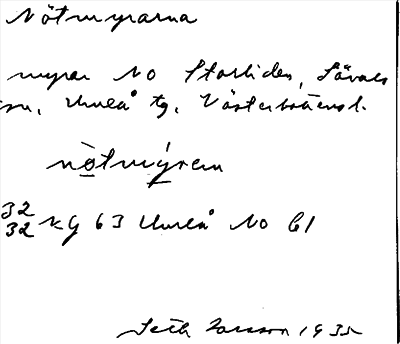 Nötmyrarna
myrar NO Stortiden, Sävars
sn, Umeå tg, Västerbottensl.
nò̲tmýren
32
32 KG 63 Umeå NO C1
Seth Larsson 1935